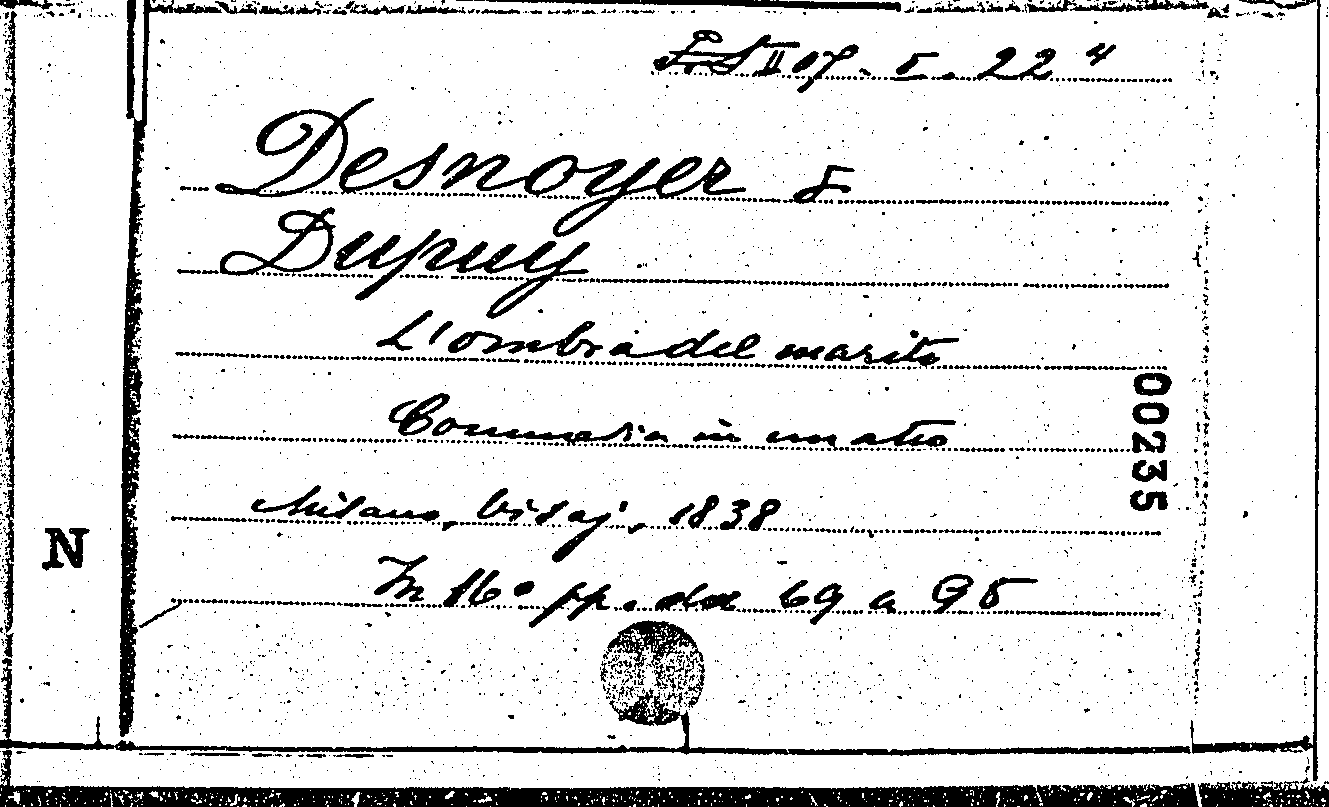 II 07. 5. 22 4
Desnoyer
Dupuy
L'ombra del marito
Commedia in un atto
Milano, Visaj, 1838
In 16° pp. da 69 a 95
00235
N